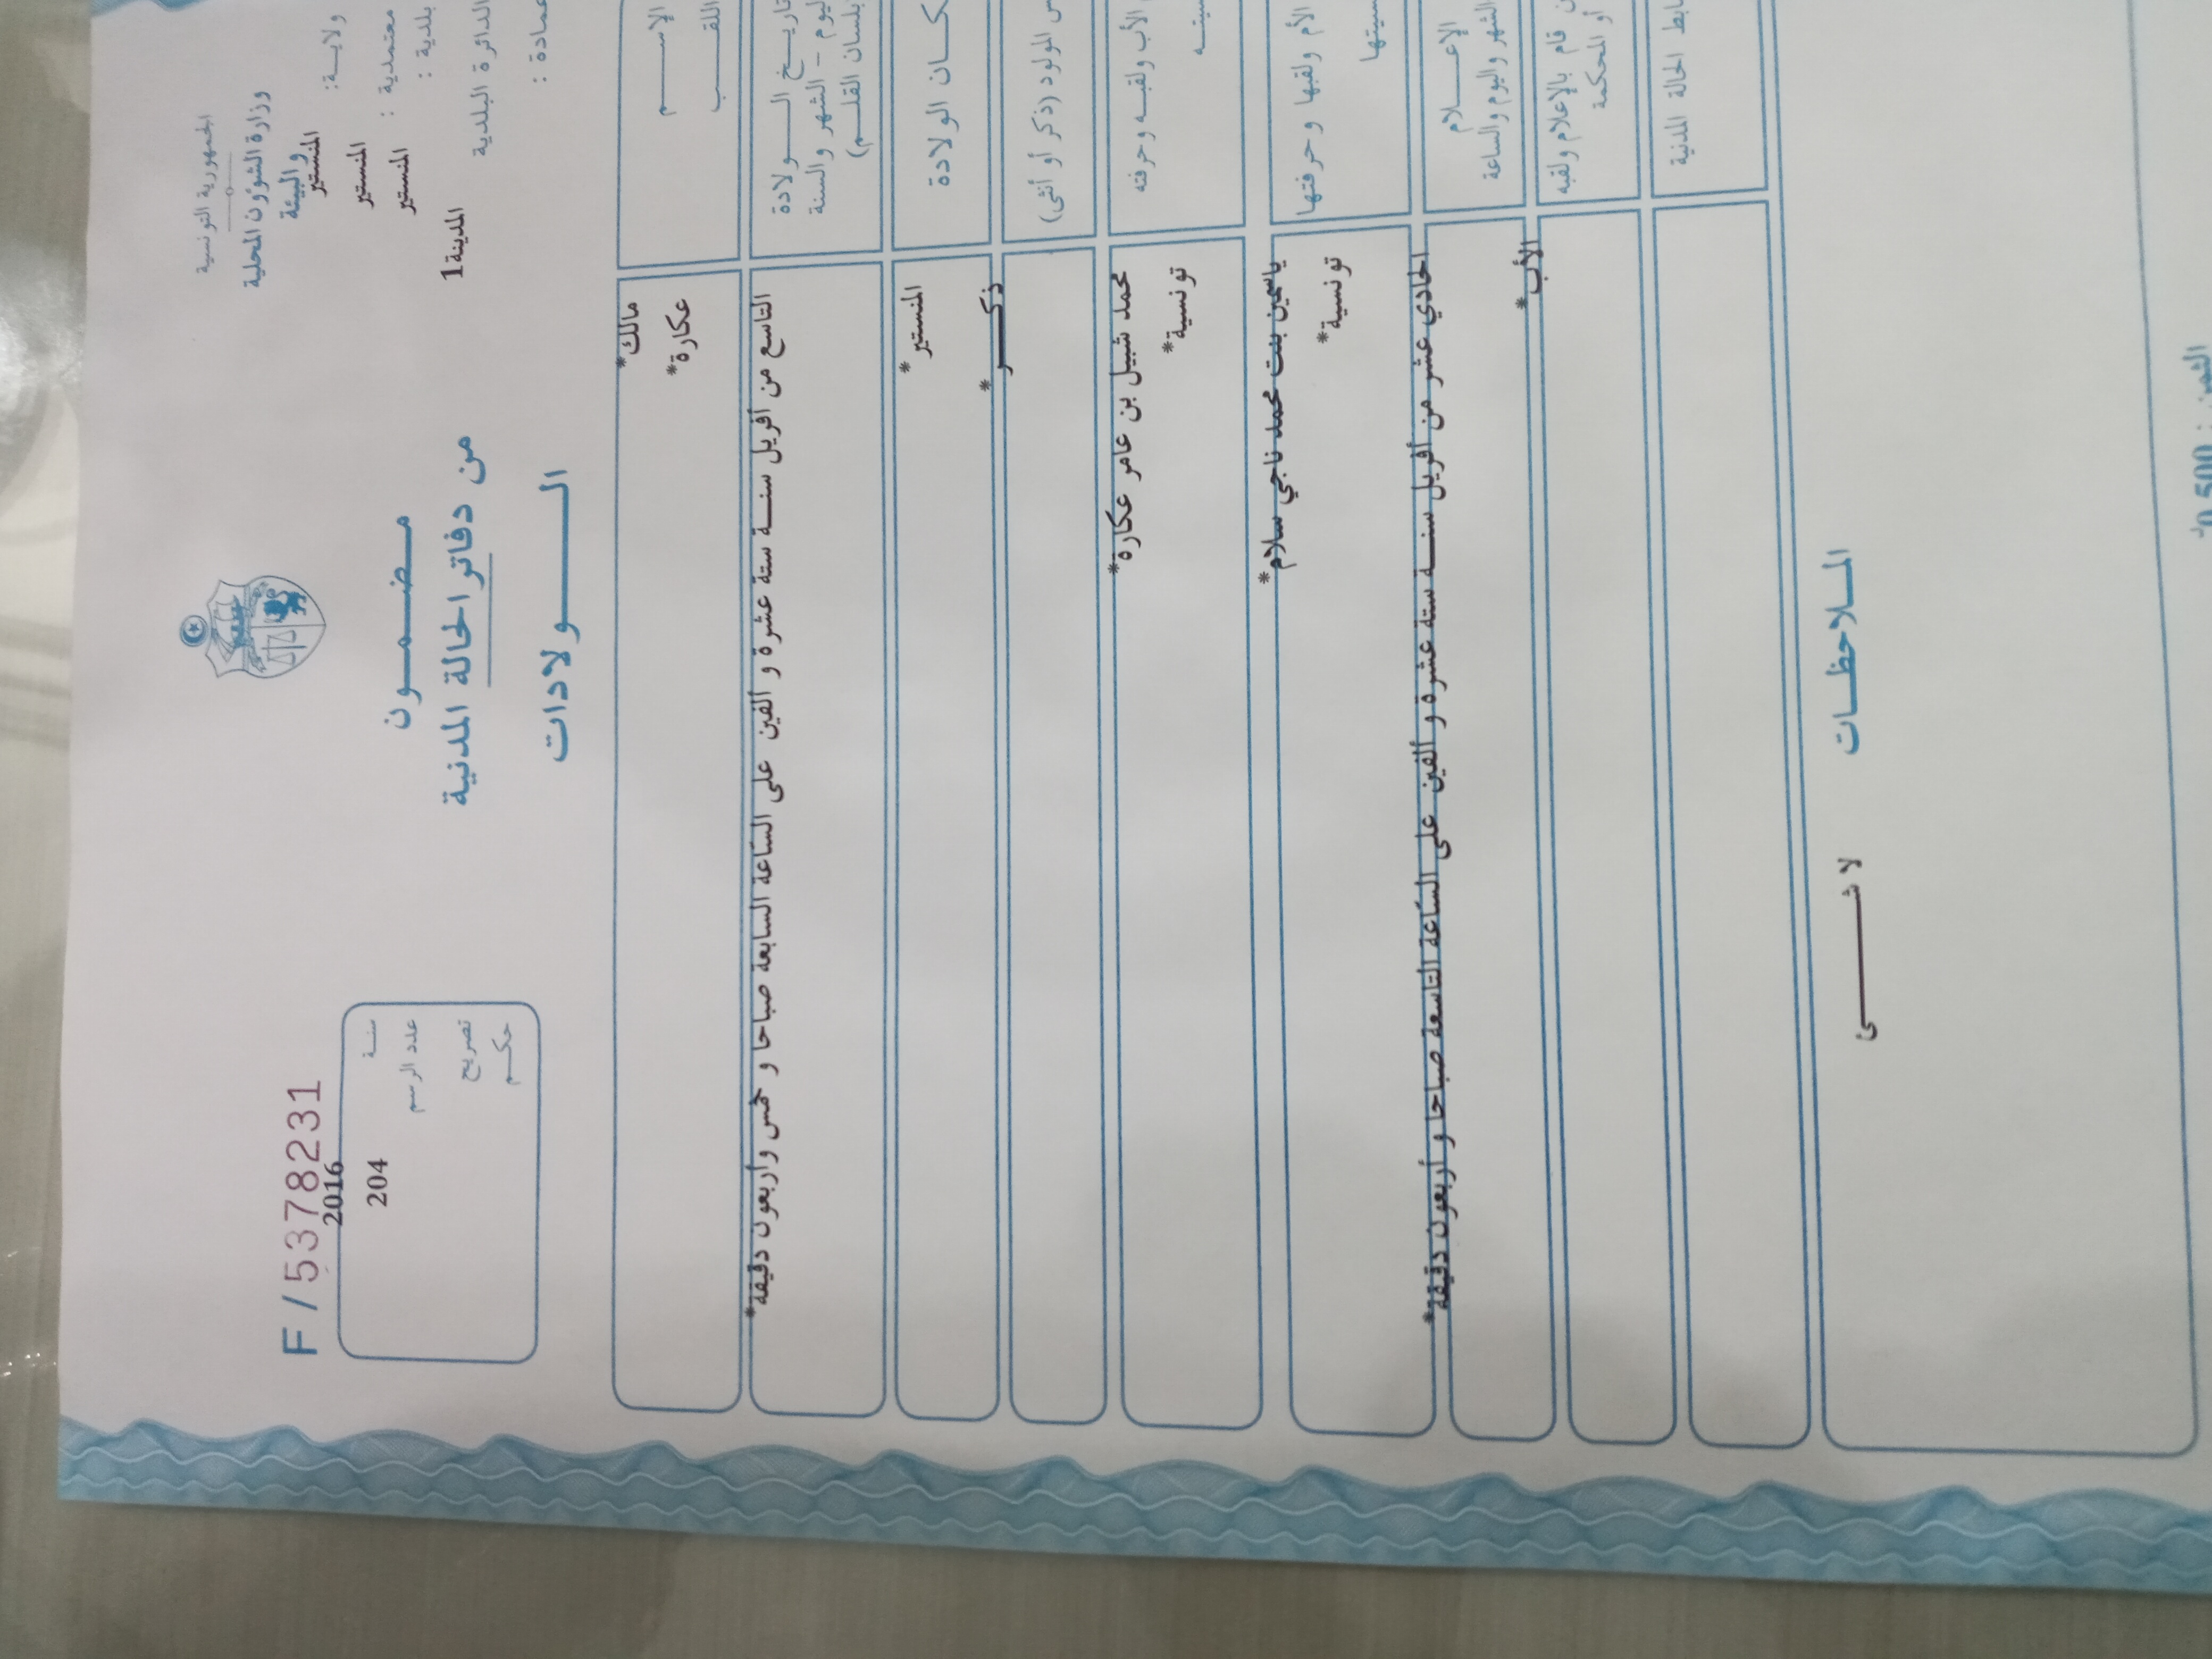 الجمهورية التونسية
وزارة الشؤون المحلية
والبيئة
ولايــة: المنستير
معتمدية : المنستير
بلدية : المنستير
الدائرة البلدية المدينة 1
عمادة :
مـضـمــون
من دفاتر الحالة المدنية
الــــولادات
F / 53782231
سنــة 2016
عدد الرسم 204
تصريح
حكــم
الإســــم مالك*
اللقــــب عكارة*
تاريــخ الــــولادة
اليوم – الشهر والسنة
بلسان القلــم)
التاسع من أفريل سنـــة ستة عشرة و ألفين على الساعة السابعة صباحا و خمس وأربعون دقيقة*
مكــان الولادة المنستير*
المولود (ذكر أو أنثى) ذكـــر*
الأب ولقبـه وحرفته محمد شبيل بن عامر عكارة*
تونسية*
الأم ولقبها وحرفتها ياسمين بنت محمد ناجي سلام*
تونسية*
الإعــــلام
الشهر واليوم والساعة
الحادي عشر من أفريل سنـــة ستة عشرة و ألفين على الساعة التاسعة صباحا و أربعون دقيقة*
قام بالإعلام ولقبه الأب*
أو المحكمة
الحالة المدنية
المـلاحظــات
لا شــــــئ
الثمن : 0,500